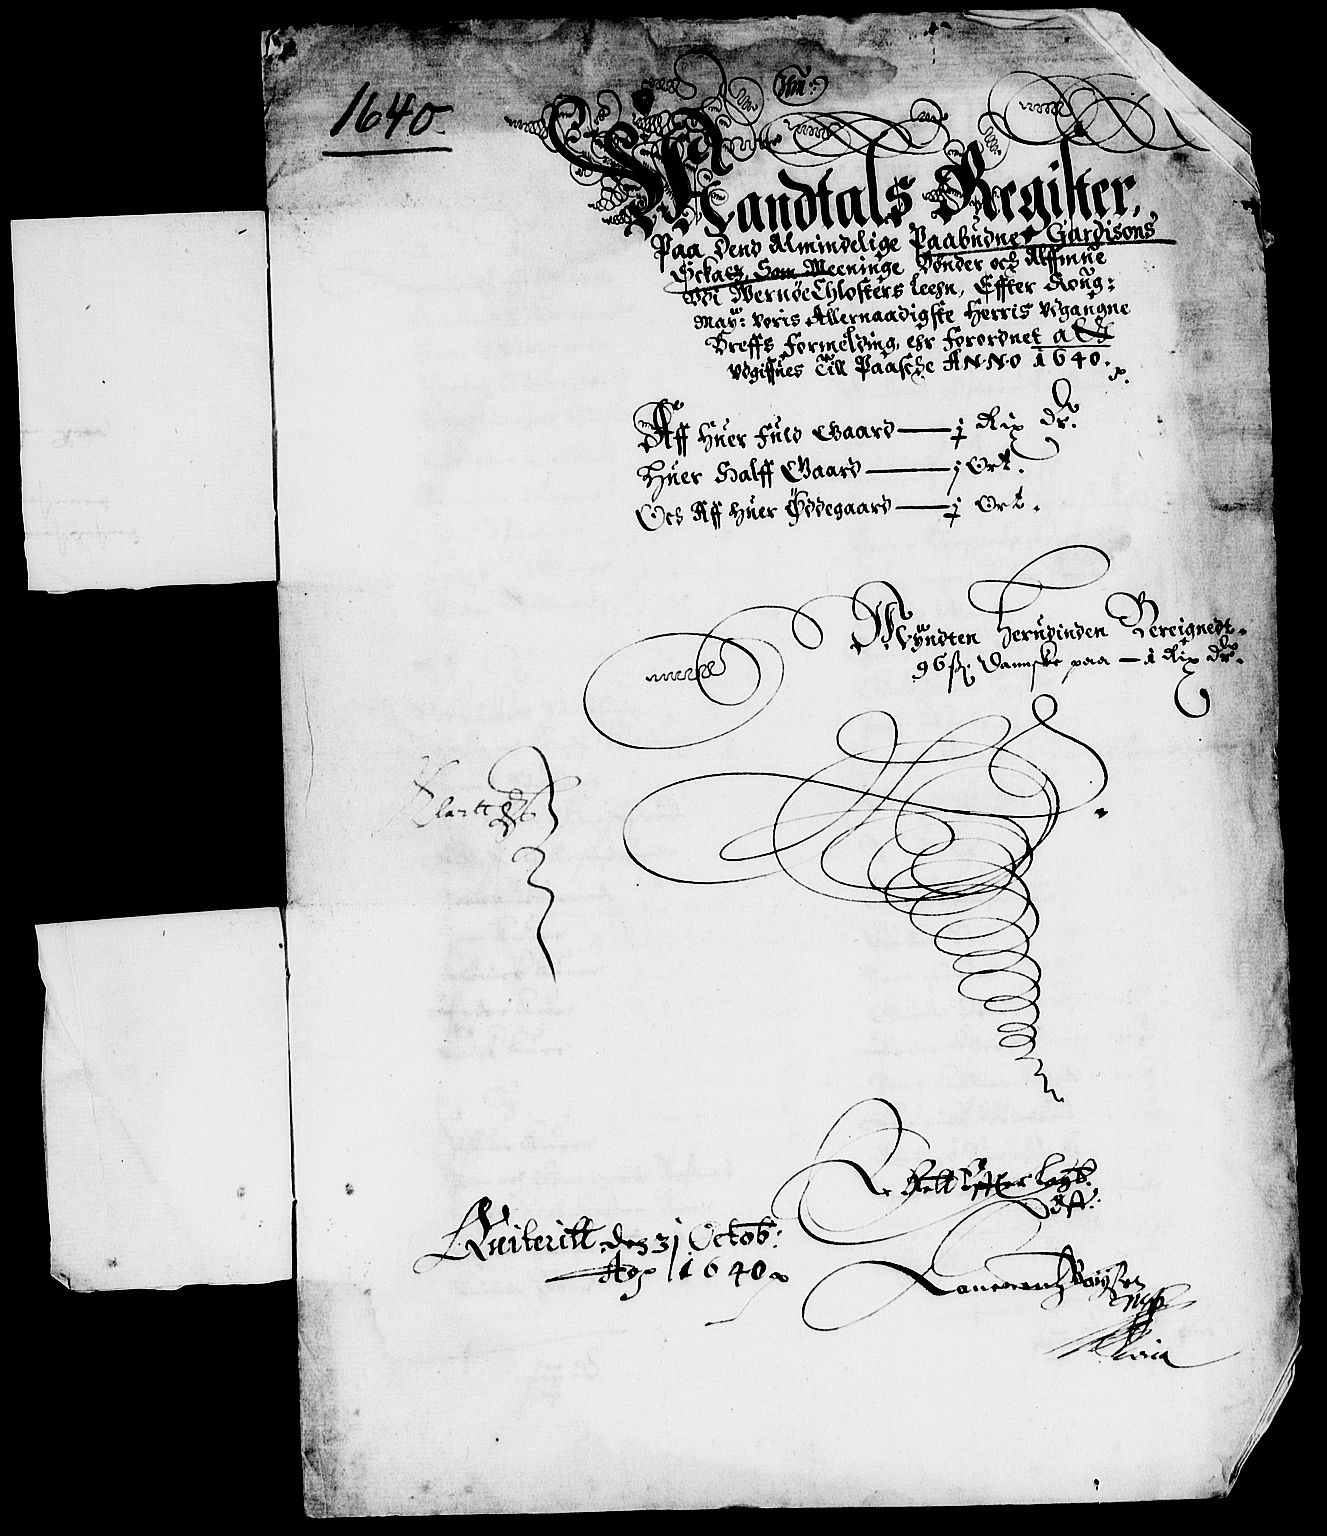 1640
Mandtals Register,
Paa Dend Almindelige Paabudne Gardisons
Schatz, Som Meeninge Bönder och Allmue
Udi WernöeChlosters leehn, Effter Kong:
May: voris Allernaadigste Herris Udgangne
Breffs Formelding, ehr Forordnet att
Udgiffues Till Paasche ANNO 1640.
Aff huer Fuld Gaard — j Rix dr.
Huer Halff Gaard — j Ort.
Och Aff huer Ödegaard — j Ort.
Myndten herudinden Bereignedt.
96 ß. Danske paa — 1 Rix dr.
Rett
Quiteritt den 31 Octob:
Ao 1640